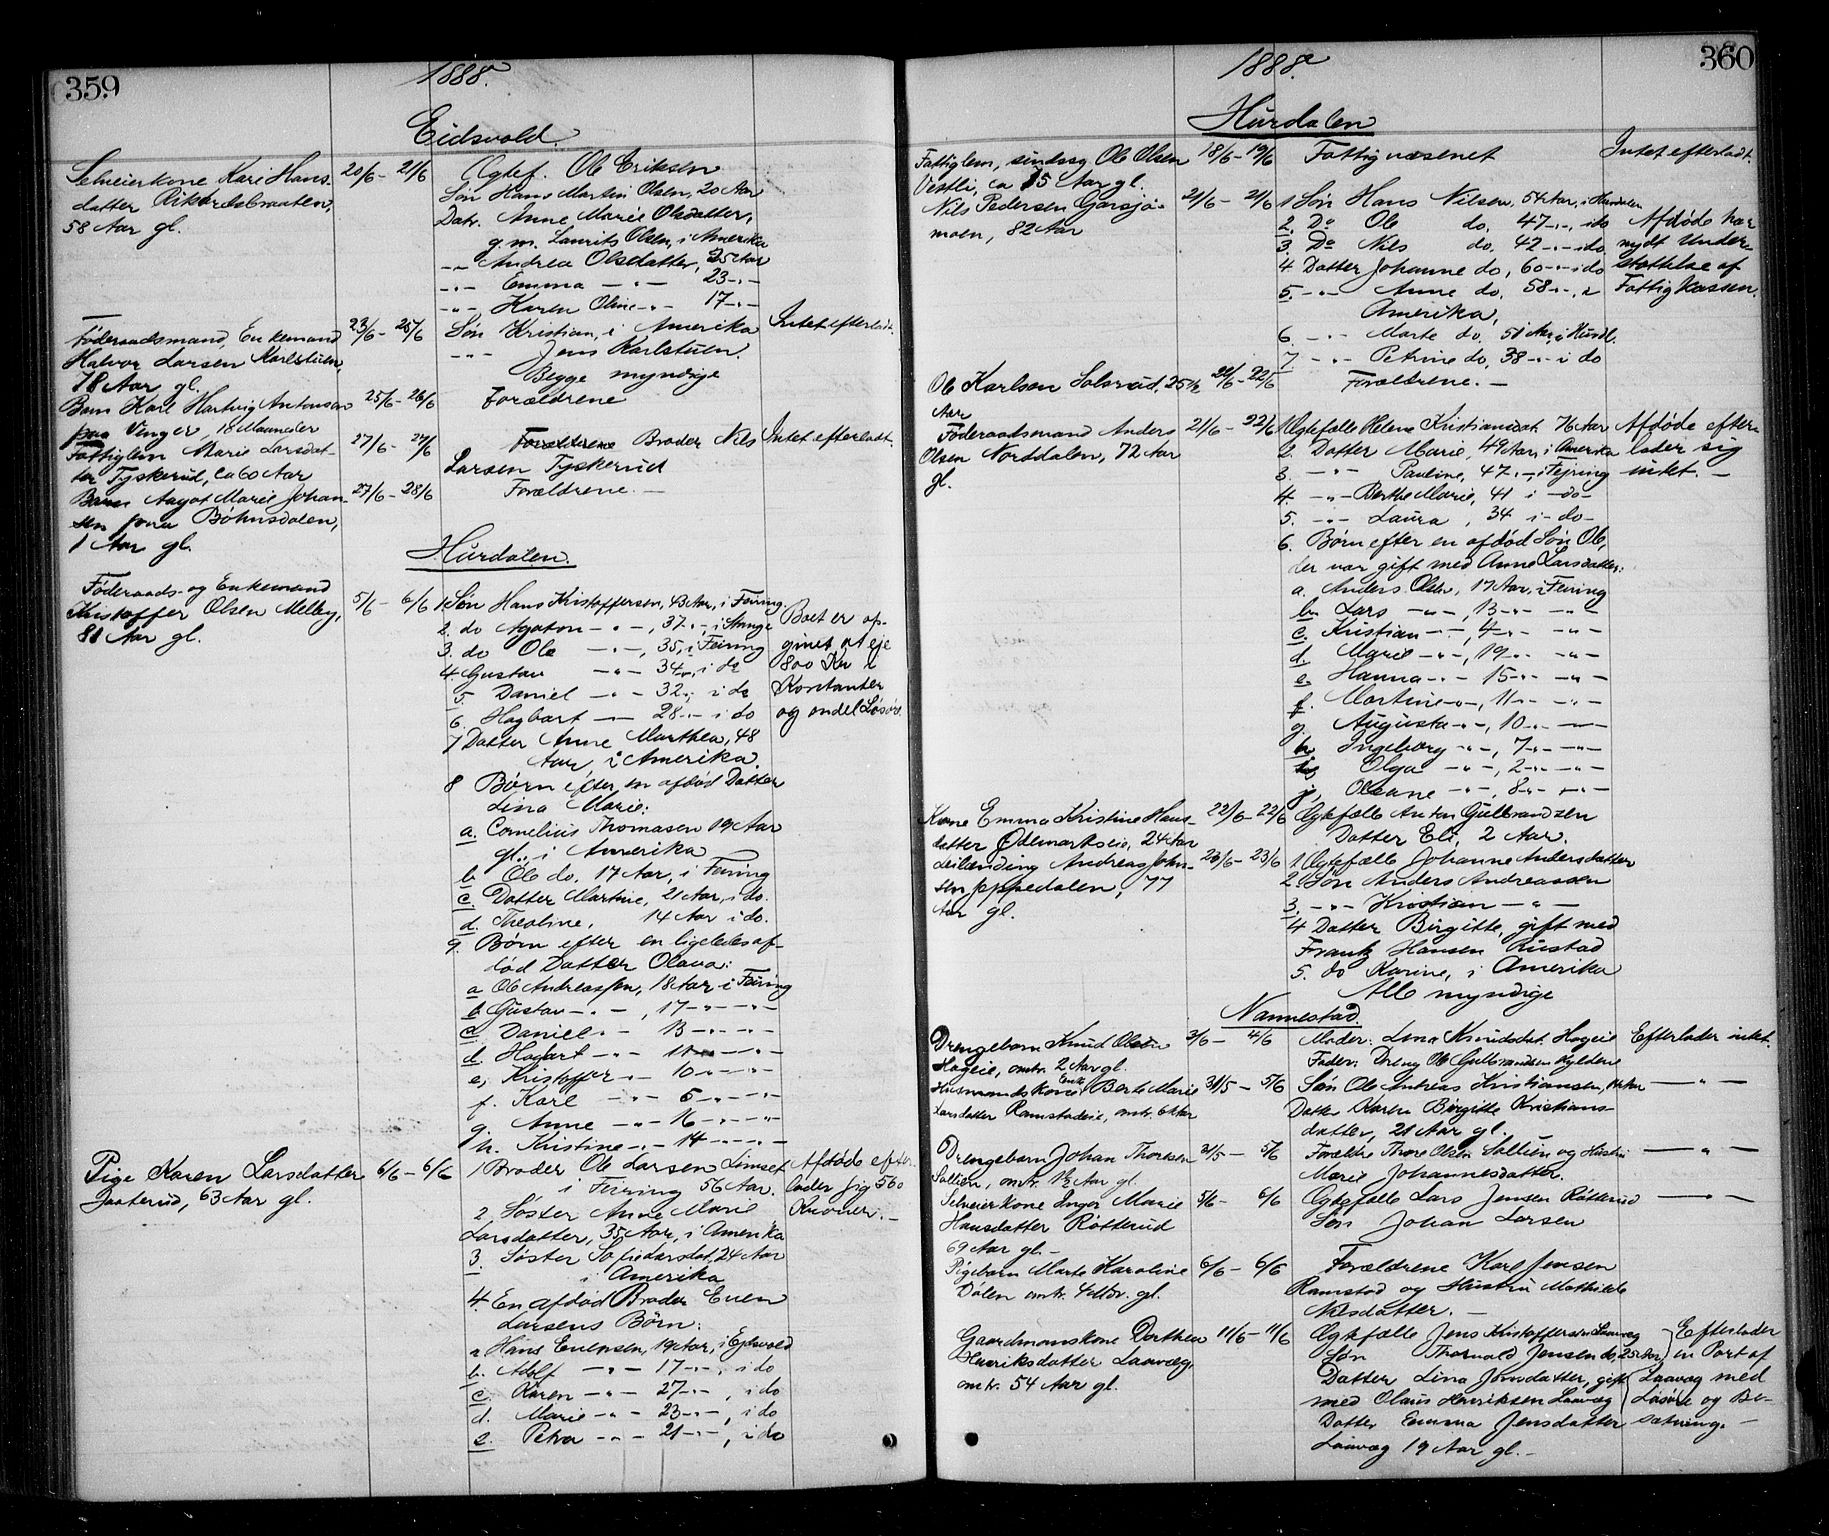 359
1888.
Eidsvold.
Selveierkone Kari Hans-
datter
58 Aar gl.
20/6 - 21/6
Ægtef. Ole Eriksen
Søn Hans Martin Olsen, 20 Aar
Datr. Anne Marie Olsdatter,
g. m. Laurits Olsen, i Amerika
-„- Andrea Olsdatter, 25 Aar
-„- Emma -„- 23 -„-
-„- Karen Oline -„- 17 -„-
Føderaadsmand, Enkemand
Halvor Larsen Karlstuen,
78 Aar gl.
23/6 - 25/6
Søn Kristian, i Amerika
-„- Jens Karlstuen.
Begge myndige
Intet efterladt.
Barn Karl Hartvig Antonsen
paa Vinger, 18 Maaneder
25/6 - 26/6
Forældrene
Fattiglem Marie Larsdat-
ter Tyskerud, ca 60 Aar
27/6 - 27/6
Forældrene Broder Nils
Larsen Tyskerud
Intet efterladt.
Barn Aagot Marie Johan-
sen fra Bøhnsdalen,
1 Aar gl.
27/6 - 28/6
Forældrene. —
Hurdalen.
Føderaads- og Enkemand
Kristoffer Olsen Melby,
81 Aar gl.
5/6 - 6/6
1 Søn Hans Kristoffersen, 43 Aar, i Feiring
2. do Agaton -„-, 37 -„- i Stange
3. do Ole -„-, 35, i Feiring
4. Gustav -„- 34 -„-, i do
5. Daniel -„- 32 -„- i do
6. Hagbart -„- 28 -„- i do
7 Datter Anne Marthea, 48
Aar, i Amerika.
8 Børn efter en afdød Datter
Lina Marie:
a. Cornelius Thomasen 19 Aar
gl. i Amerika
b. Ole do, 17 Aar, i Feiring
c. Datter Martine, 21 Aar, i do.
d. Theoline, 14 Aar i do.
9. Børn efter en ligeledes af-
død Datter Olava:
a Ole Andreassen, 18 Aar i Feiring
b Gustav -„-, 17 -„- -„-
c Daniel -„- 13 -„- -„-
d. Hagbart -„- 11 -„- -„-
e, Kristoffer -„- 10 -„- -„-
f. Karl -„- 5 -„- -„-
g. Anne -„- 16 -„- -„-
h. Kristine -„- 14 -„- -„-
Boet er op-
givet at eje
800 Kr i
Kontanter
og endel Løsøre
Pige Karen Larsdatter
63 Aar gl.
6/6 - 6/6
1 Broder Ole Larsen Limset
i Feiring 56 Aar.
2. Søster Anne Marie
Larsdatter, 35 Aar, i Amerika
3. Søster Sofie Larsdat. 24 Aar
i Amerika
4. En afdød Broder Even
Larsens Børn:
a Hans Evensen, 19 Aar, i Ejdsvold
b. Adolf -„- 17 -„-, i do
c. Karen -„- 27 -„-, i do
d. Marie -„- 23 -„-, i do
e. Petra -„- 21 -„-, i do
Afdøde efter-
lader sig 560
Kroner. —
360
1888.
Hurdalen
Fattiglem, sindssyg Ole Olsen
Vestli, ca 75 Aar gl.
18/6 - 19/6
Fattigvæsenet
Intet efterladt.
Nils Pedersen Garsjø-
moen, 82 Aar
21/6 - 21/6
1 Søn Hans Nilsen, 54 Aar, i Hurdalen
2. Do Ole do, 47 -„-, i do
3. Do Nils do, 42 -„- i do
4 Datter Johanne do, 60 -„- i do
5. -„- Anne do, 58 -„-, i
Amerika,
6. -„- Marte do, 51 Aar, i Hurdl.
7 -„- Petrine do, 38 -„- i do
Afdøde har
nydt Under-
støttelse af
Fattigkassen.
Ole Karlsen Solsrud, 25 1/2
Aar
22/6 - 22/6
Forældrene. —
Føderaadsmand Anders
Olsen Norddalen, 72 Aar
gl.
21/6 - 22/6
1 Ægtefælle Helene Kristiansdat. 76 Aar
2. Datter Marie, 49 Aar, i Amerika
3. -„- Pauline, 47 -„-, i Fejring
4. -„- Berthe Marie, 41 i -do-
5. -„- Laura, 34 i -do-
6. Børn efter en afdød Søn Ole,
der var gift med Anne Larsdatter:
a. Anders Olsen, 17 Aar, i Feiring
b. Lars -„-, 13 -„- -„-
c. Kristian -„-, 4 -„- -„-
d. Marie -„-, 19 -„- -„-
e. Hanna -„- 15 -„- -„-
f. Martine -„-, 11 -„- -„-
g. Augusta -„-, 10 -„- -„-
h Ingeborg -„-, 7 -„- -„-
i, Olga -„-, 2 -„- -„-
j, Oleane -„-, 8 -„- -„-
Afdøde efter-
lader sig
intet. —
Kone Emma Kristine Hans-
datter Ødemarkseie, 24 Aar
22/6 - 22/6
Ægtefælle Anton Gulbrandsen
Datter Eli, 2 Aar.
Leilænding Andreas John-
sen Jeppedalen, 77
Aar gl.
23/6 - 23/6
1 Ægtefælle Johanne Andersdatter
2. Søn Anders Andreassen
3. -„- Kristian -„-
4 Datter Birgitte, gift med
Frantz Hansen Rustad
5. do Karine, i Amerika
Alle myndige
Nannestad
Drengebarn Knud Olsen
Hageie, omtr. 2 Aar gl.
3/6 - 4/6
Moder: Lina Knudsdat. Hageie
Fader: Dreng Ole Gulbrandsen
Efterlader intet.
Husmandskone Enke Berte Marie
Larsdatter Ramstadeie, omtr. 61 Aar
31/5 - 5/6
Søn Ole Andreas Kristiansen,
Datter Karen Birgitte Kristians-
datter, 21 Aar gl.
— „ —
Drengebarn Johan Thoresen
omtr. 1 1/2 Aar gl.
31/5 - 5/6
Forældre Thore Olsen og Hustru
Marie Johannesdatter.
— „ —
Selveierkone Inger Marie
Hansdatter Røtterud
69 Aar gl. —
5/6 - 6/6
Ægtefælle Lars Jensen Røtterud
Søn Johan Larsen
— „ —
Pigebarn Marte Karoline
Dølen omtr. 4 Mdr. gl.
6/6 - 6/6
Forældrene Karl Jensen
Ramstad og Hustru Mathilde
Nilsdatter. —
Gaardmandskone Dorthea
Henriksdatter Laavæg,
omtr. 54 Aar gl.
11/6 - 11/6
Ægtefælle Jens Kristoffersen Laavæg
Søn Thorvald Jensen do, 25 Aar
Datter Lina Jensdatter, gift
med Olaus Henriksen Laavæg
Datter Emma Jensdatter
Laavæg 19 Aar gl. —
Efterlader
en Part af
Laavæg med
Løsøre og Be-
sætning. —